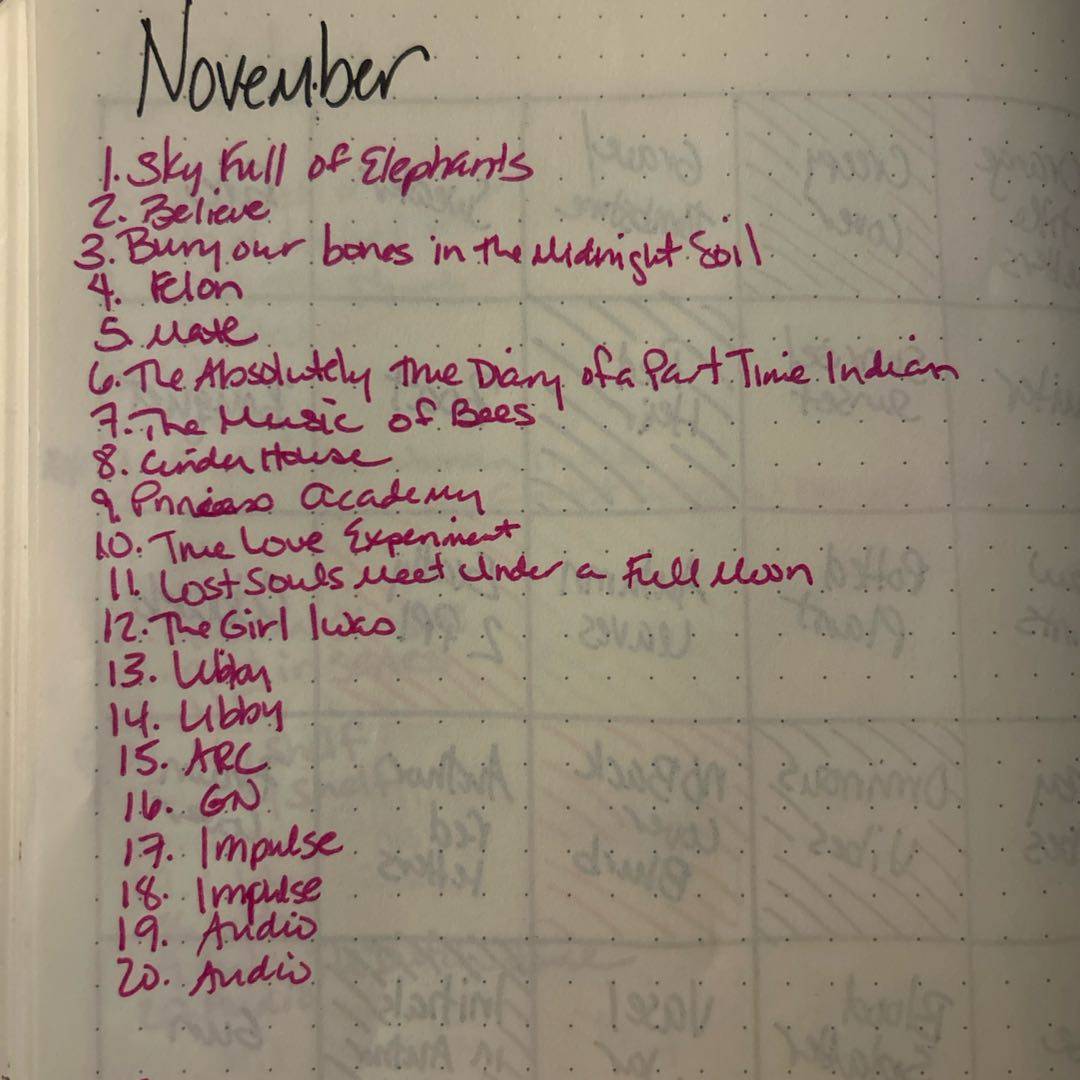 November
1. Sky Full of Elephants
2. Believe
3. Bury our bones in the Midnight Soil
4. Felon
5. Mate
6. The Absolutely True Diary of a Part Time Indian
7. The Music of Bees
8. Cinder House
9. Princess Academy
10. True Love Experiment
11. Lost Souls Meet Under a Full Moon
12. The Girl I was
13. Libby
14. Libby
15. ARC
16. GN
17. Impulse
18. Impulse
19. Audio
20. Audio